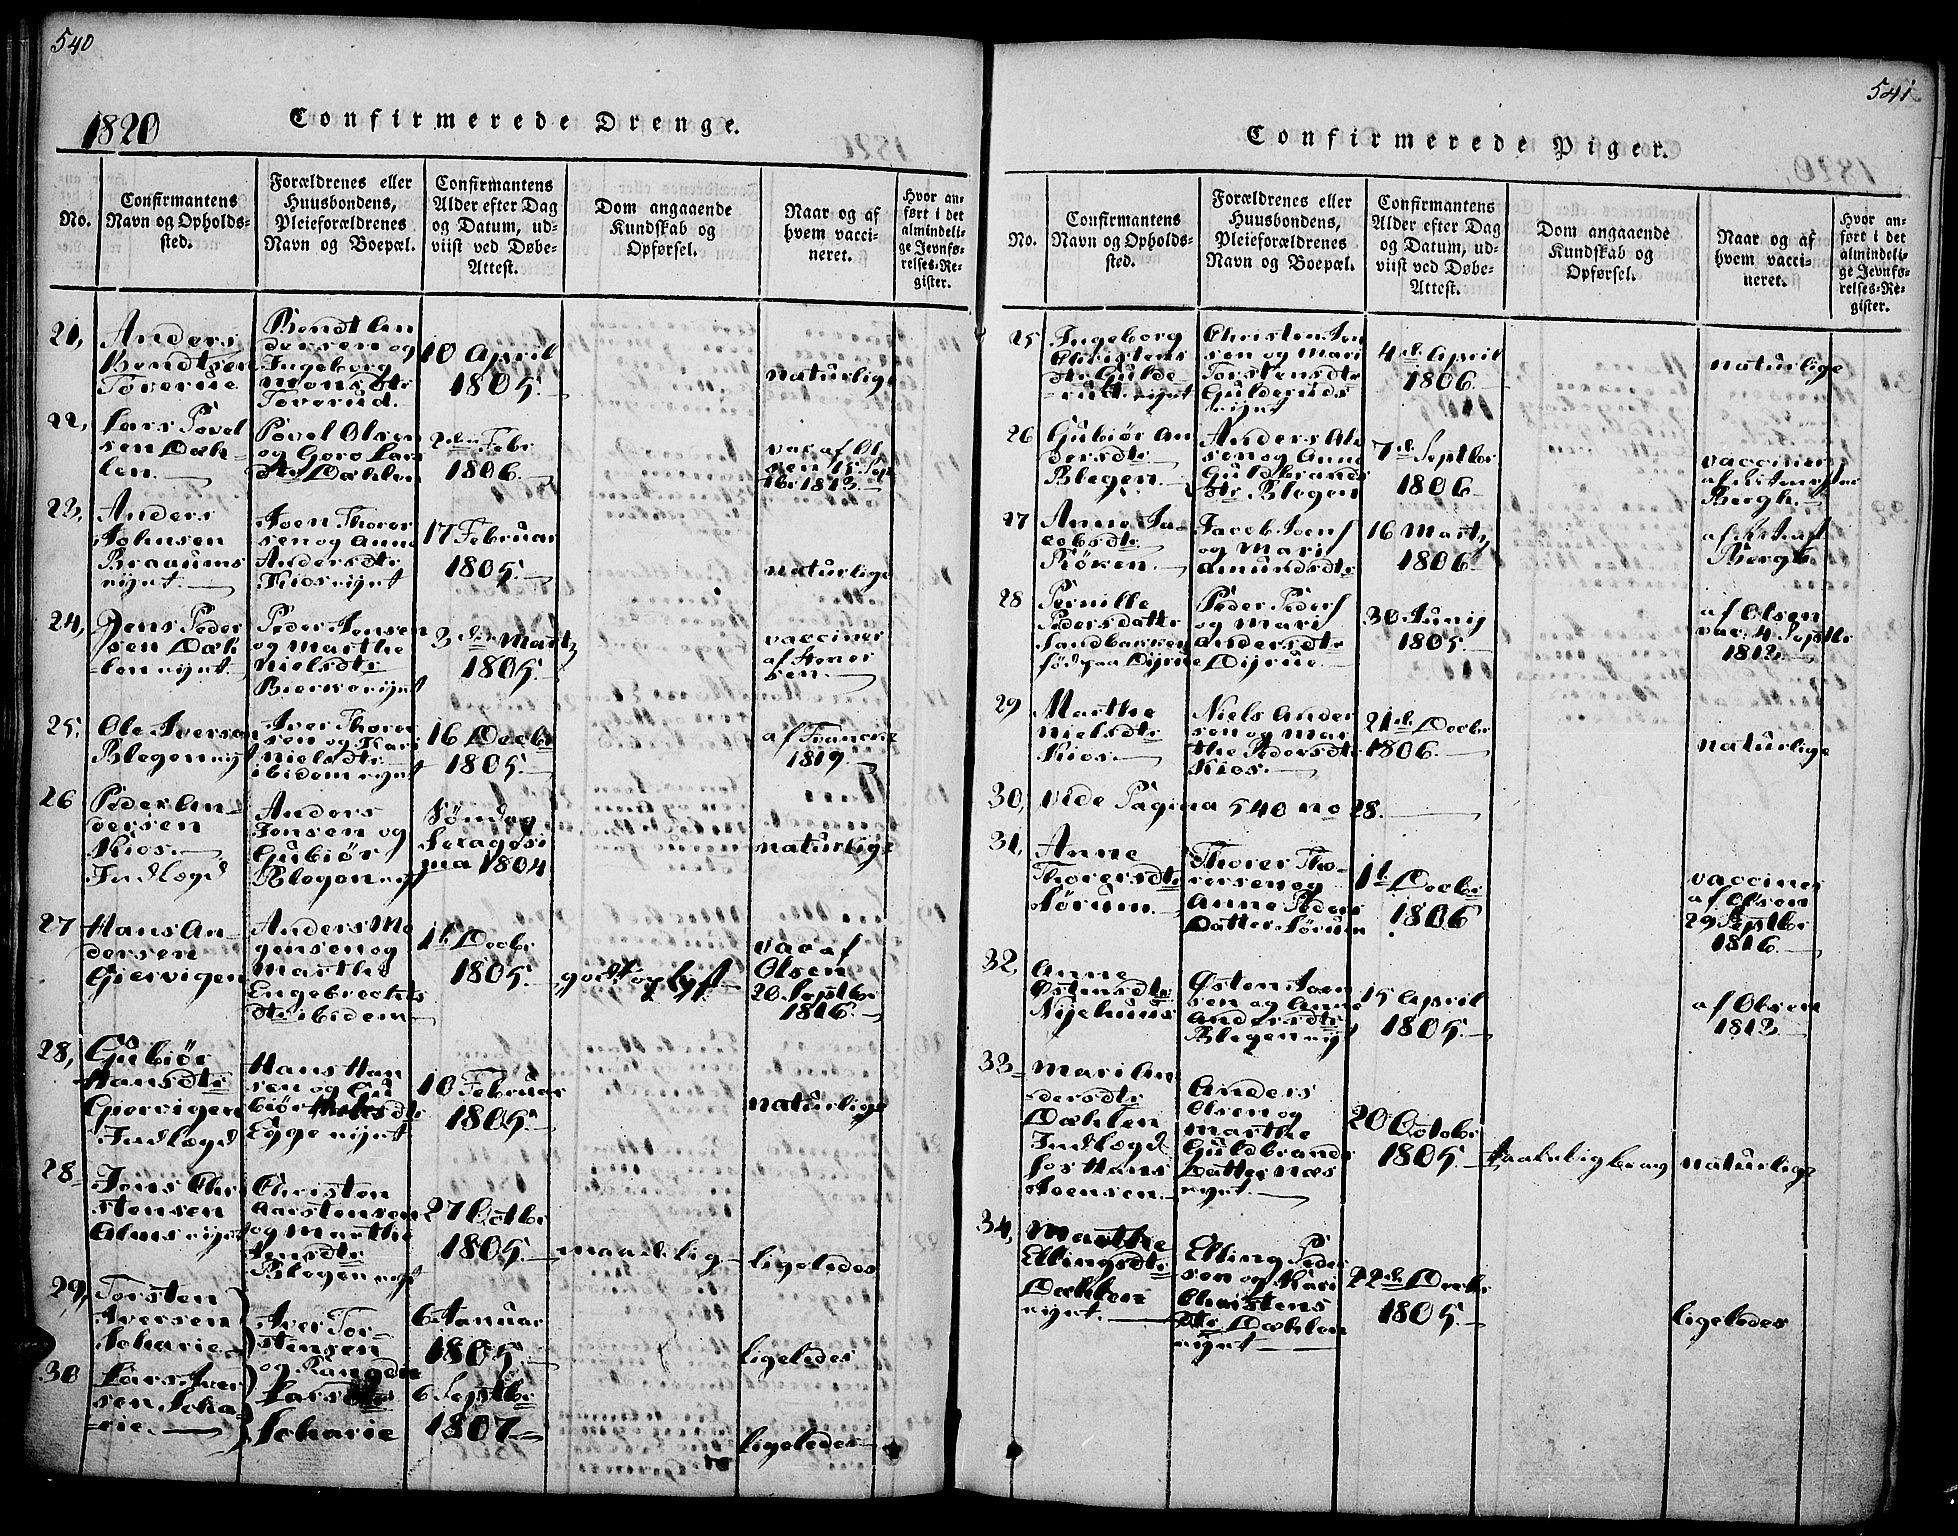 540
1820
Confirmerede Drenge.
No.
Confirmantens
Navn og Opholds-
sted.
Forældrenes eller
Huusbondens,
Pleieforældrenes
Navn og Boepæl.
Confirmantens
Alder efter Dag
og Datum, ud-
viist ved Døbe-
Attest.
Dom angaaende
Kundskab og
Opførsel.
Naar og af
hvem vacci-
neret.
Hvor an-
ført i det
almindeli-
ge Jevnfø-
relses-Re-
gister.
21,
Anders
Bendtsen
Bendt An
dersen og
Ingeborg
Monsdtr
10 April
1805.
naturlige
22,
Lars Povel
sen Dæh-
len
Povel Olsen
og Goro Lars
dtr Dæhlen
2den Febr
1806.
vac af Ol
sen 15 Sep
tbr 1813
23,
Anders
Johnsen
Braaums
eignt
Joen Thorer
sen og Anne
Andersdtr
Kios eignt
17 Februar
1805.
naturlige
24,
Jens Peder
sen Dæh
len eignt
Peder Jensen
og Marthe
Nielsdtr
3die Martz
1805.
vacciner
af Stener
sen.
25,
Ole Iversen
Blegen eignt
Iver Thorer
sen og Kari
Nielsdtr
ibidem eignt
16 Decbr
1805.
af
1819.
26
Peder An-
dersen
Kios.
Indlægd
Anders
Jensen og
Gubiør
Blegen eignt
Søndag
Sexagesi
ma 1804
naturlige
27
Hans An-
dersen
Giervigen
Anders Mo
gensen og
Marthe
Engebrechts
dtr ibidem
1te Decbr
1805.
godt oplyst
vac af
Olsen
20 Septbr
1816.
28,
Gubiør
Hansdtr
Giervigen
Indlægd
Hans Han
sen og Gu
biør
Egge eignt
10 Februar
1805.
naturlige
28
Jens Chri
stensen
eignt
Christen
Carstensen
og Marthe
Jensdtr
Blegen eignt
27 Octbr
1805.
maadelig
ligeledes
29,
Torsten
Iversen
Scharie
Iver Tor-
stensen
og Rangdi
Larsdtr
Scharie
6 Januar
1805.
ligeledes
30
Lars Iver
sen Scha-
rie.
6 Septbr
1807.
ligeledes
541
Confirmerede Piger.
No.
Confirmantens
Navn og Opholds-
sted.
Forældrenes eller
Huusbondens,
Pleieforældrenes
Navn og Boepæl.
Confirmantens
Alder efter Dag
og Datum, ud-
viist ved Døbe-
Attest.
Dom angaaende
Kundskab og
Opførsel.
Naar og af
hvem vacci-
neret.
Hvor an-
ført i det
almindeli-
ge Jevnfø-
relses-Re-
gister.
25
Ingeborg
Christens
dtr Gulde
rud eignt
Christen Jen
sen og Mari
Torstensdtr
Gulderuds
eignt
4de April
1806.
naturlige
26
Gubiør An
dersdtr
Blegen.
Anders Ol
sen og Anne
Guldbrands
dtr Blegen
7de Septbr
1806
vacciner
af
Bergh.
27
Anne Ja-
cobsdtr
Røken.
Jacob Joens
og Mari
Amundsdtr
16 Martz
1806.
af
Bergh
28
Pernille
Pedersdatter
Sandbakken
fød paa Dijrne
Peder Peders
og Mari
Andersdtr
Dijrne
30 Junij
1805.
af Olsen
vac. 4 Septbr
1812.
29
Marthe
Nielsdtr
Kios.
Niels Ander
sen og Mar
the Pedersdtr
Kios.
21de Decbr
1806.
naturlige
30,
vide Pagina 540 no 28.
31,
Anne
Thorersdtr
Sørum.
Thorer Tho-
rersen og
Anne Peders
Datter Sørum
1te Decbr
1806
vacciner
af Olsen
29 Septbr
1816.
32,
Anne
Østensdtr
Nijehuus
Østen Joen
sen og Anne
Andersdtr
Blegen eignt
15 April
1805.
af Olsen
1812
33
Mari An
dersdtr
Dæhlen
Indlægd
hos Hans
Joensen.
Anders
Olsen og
Marthe
Guldbrands
Datter Næs
eignt.
20 Octobr
1805.
taalelig brug
naturlige
34,
Marthe
Ellingsdtr
Dæhlen
eignt.
Elling Peder
sen og Kari
Christens
dtr Dæhlen
eignt
22de Decbr
1805.
ligeledes